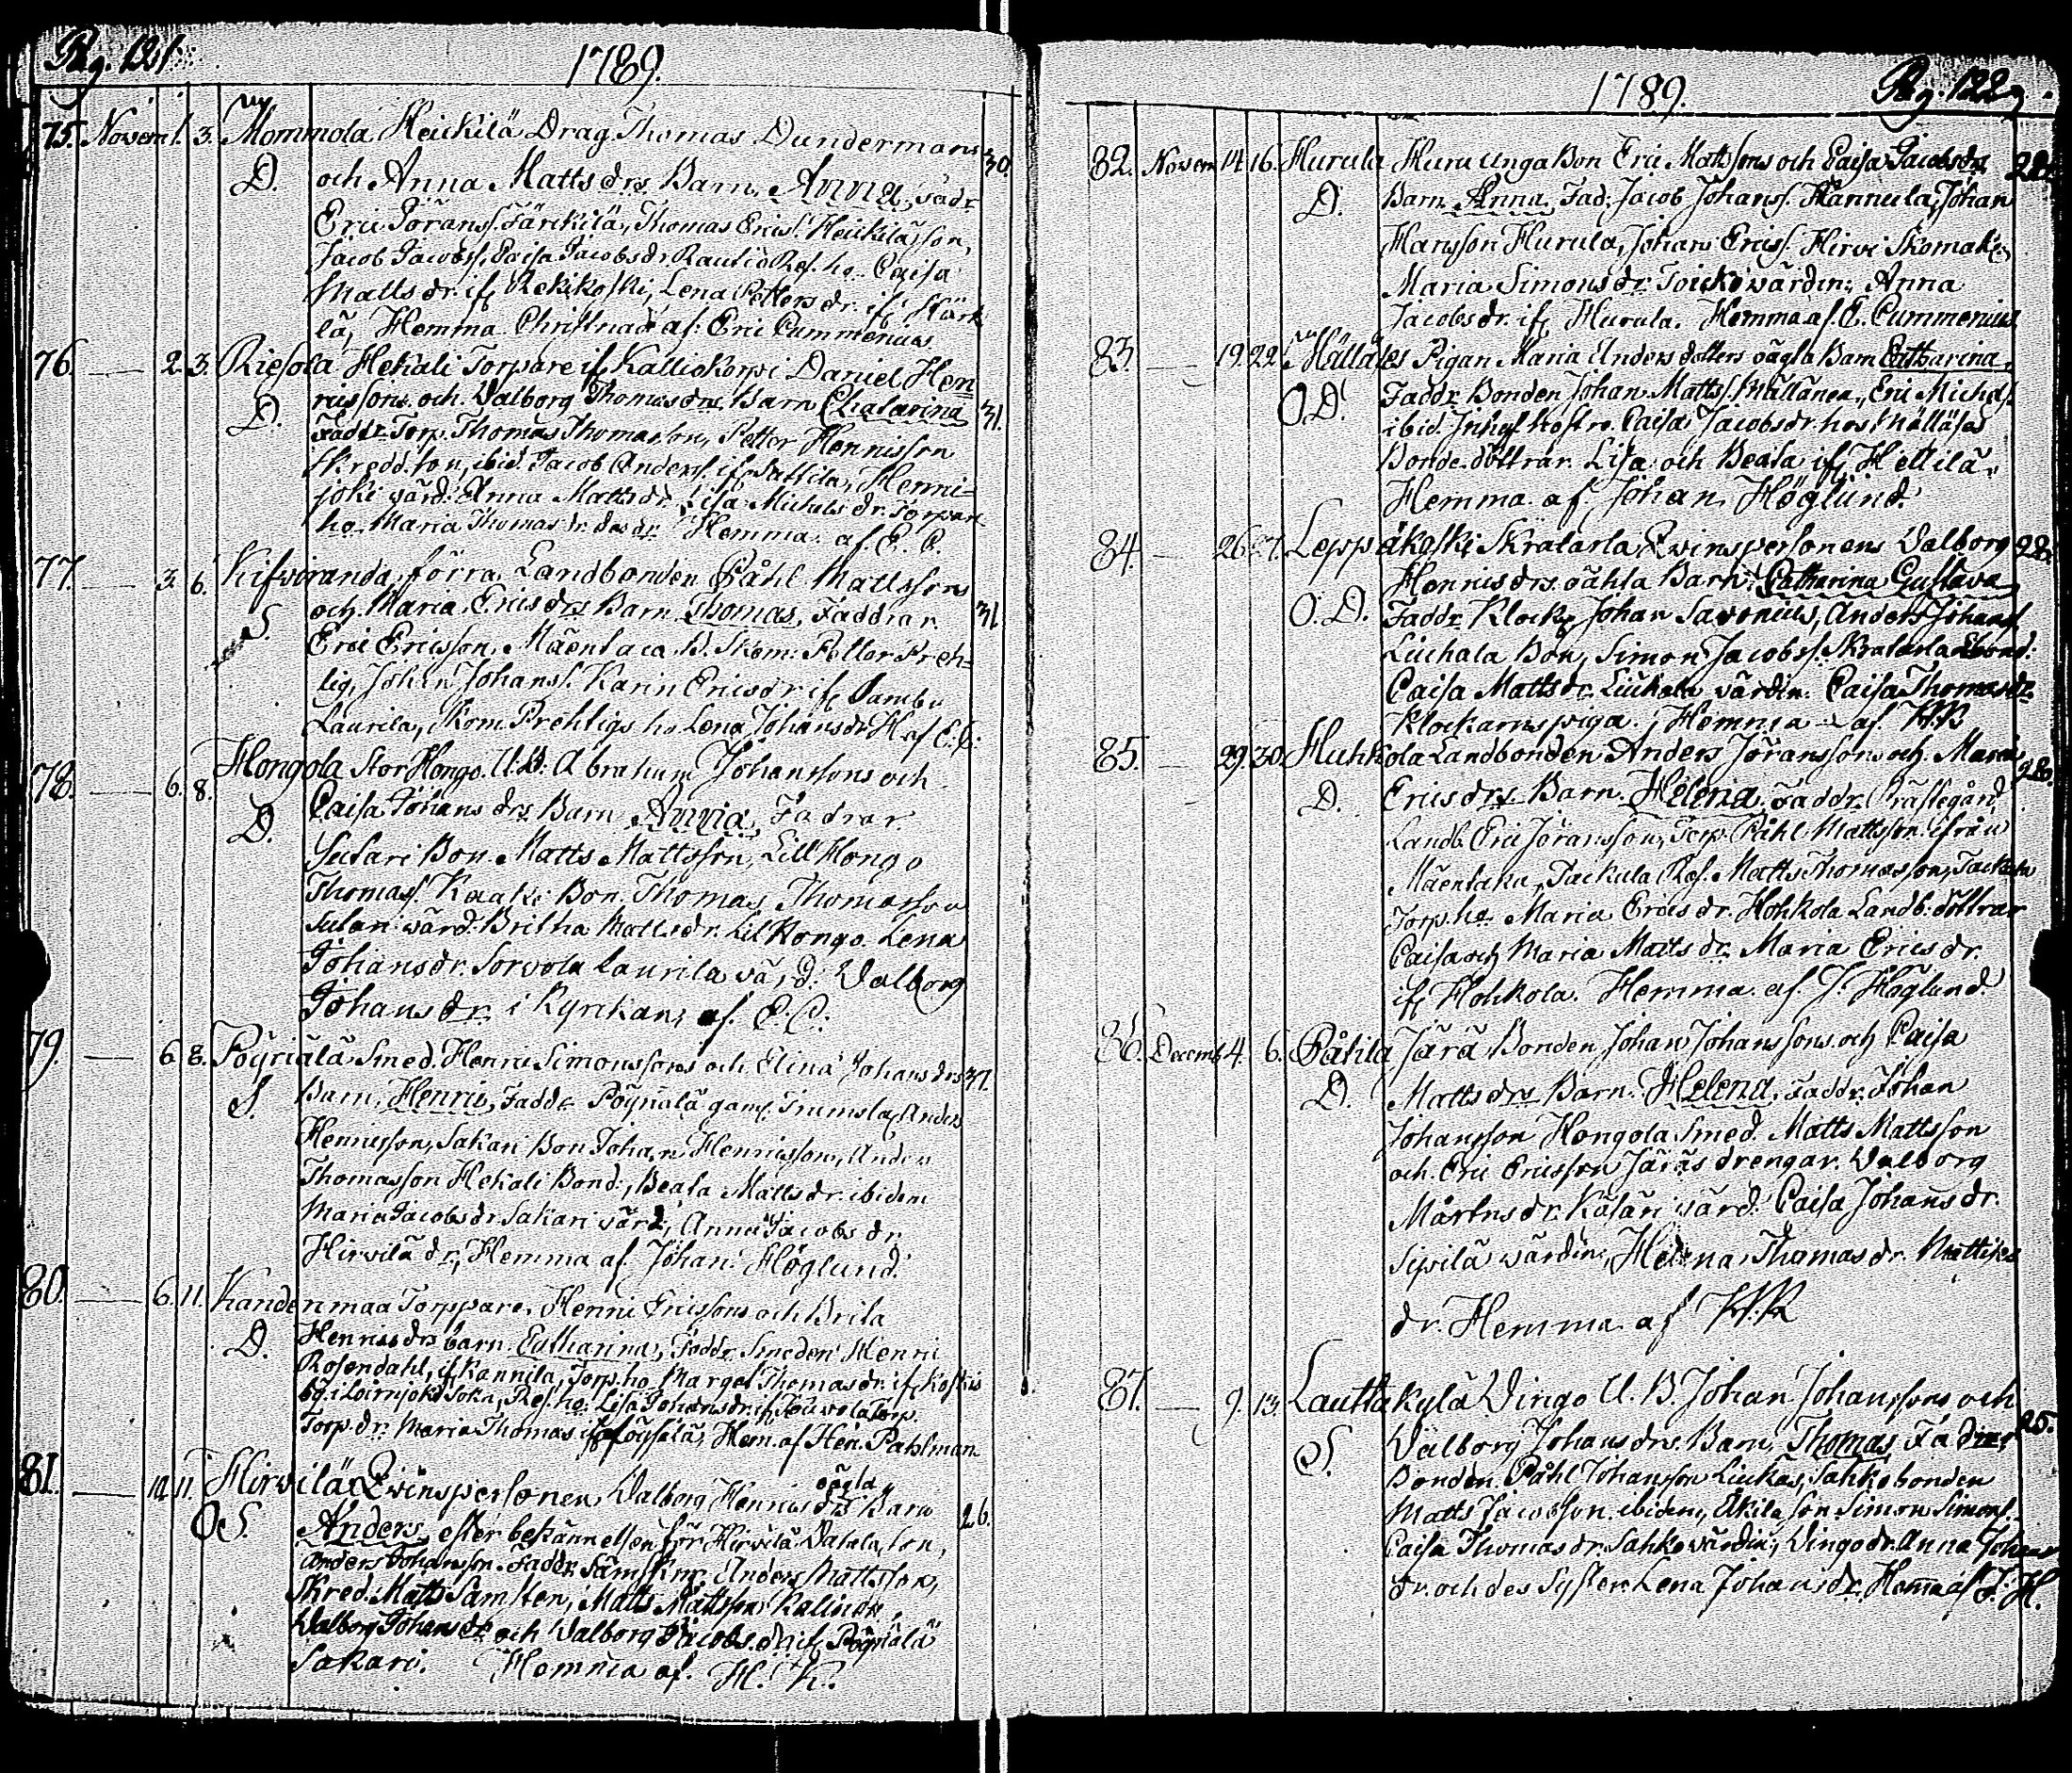 Pag. 121
1789.
75. Novem 1. 3. Mommola Heickilä Drag. Thomas Dundermans 30.
D. och Anna Matts drs Barn, Anna, Fadr
Eric Göranss. Färckilä, Thomas Erics. Heickilä son,
Jacob Jacobss. Caisa Jacobs dr. Rautio Ref. ho. Caisa
Matts dr. if. Rekikoski, Lena Petters dr. if. Härk
lä, Hemma Christnad af: Eric Cummenius
76. — 2. 3. Riesola Hekali Torpare if Kalliokorpi Daniel Hen
D. ricssons och Valborg Thomas drs Barn Chatarina 31.
Faddr Torp. Thomas Thomasson, Petter Henricsson
Skredd. son, ibid. Jacob Anderss. if, Henni-
joki värd: Anna Matts dr. Lisa Michels dr. Torpare
ho. Maria Thomas dr. des dr. Hemma af E. C.
77. — 3. 6. Kifviranda, förra Landbonden Påhl Mattssons
S. och Maria Erics drs Barn Thomas, Faddrar 31
Eric Ericsson, Mäentaca B. Skom: Petter Freh-
lig, Johan Johanss. Karin Erics dr if, Sambu
Laurila, Skom. Frehligs ho. Lena Johans dr H. af E. C.
78. — 6. 8. Hongola Stor Hongo. U. B. Abraham Johanssons och
D. Caisa Johans drs Barn Anna, Fadrar
Sutari Bon. Matts Mattsson, Lill Hongo
Thomass. Kaaki Bon, Thomas Thomasson
Sutari värd: Britha Matts dr. Lil Hongo Lena
Johans dr. Sorvola Laurila värd: Valborg
Johans dr. i Kyrckan, af E. C.
79. — 6. 8. Pöyriälä Smed. Henric Simonssons och Elina Johans drs 37.
S. Barn, Henric, Faddr Pöyriälä gaml. Trumsla, Anders
Henricsson, Sakari Bon Johan Henricsson, Anders
Thomasson Hekali Bond:, Beata Matts dr. ibidem
Maria Jacobs dr. Sakari värd, Anna Jacobs dr.
Hirvilä dr, Hemma af Johan Höglund.
80. — 6. 11. Kandenmaa Torppare, Henric Ericssons och Brita
D. Henrics drs barn Catharina, Faddr Smeden Henric
Rosendahl, if, Kannila, Torp. ho. Marget Thomas dr. if, Koskis
by i Loimjoki Sokn, Ref. ho. Lisa Johans dr. if, Torp.
Torp. dr. Maria Thomas, Hem. af Hen. Pahlman
81. — 10. 11. Hirvilä Qvinspersonen, Valborg Henrics drs oägta Barn
O S. Anders, efter bekännelsen för Hirvilä Vatola, son, 26.
Anders Johansson. Faddr. Sämskmr. Anders Mattsson,
Skred. Matts Samsten, Matts Mattsson Kalinen,
Valborg Johans dr. och Valborg Jacobs dr. if, Pöyriälä
Sakari. Hemma af. H. K.
1789.
Pag. 122
82. Novem 14. 16. Hurula Huru unga Bon Eric Mattssons och Caisa Jacobs drs
D. Barn Anna, Fad: Jacob Johanss. Hannula, Johan
Hansson Hurula, Johan Ericss. Hirvi Skomake,
Maria Simons dr. Toicko värdin, Anna
Jacobs dr. if, Hurula. Hemma af. E. Cummenius
83. — 19. 22. Mälläles Pigan Maria Anders dotters oägta Barn Catharina,
O. D. Faddr Bonden Johan Matts. Mällänen, Eric Michelss.
ibid. Inhys hustro. Caisa Jacobs dr. hos Mälläles
Bonde. döttrar. Lisa och Beata if, Hettilä,
Hemma af Johan Höglund.
84. — 26. 27. Leppäkoski Skratarla, Qvinspersonens Valborg 28.
O. D. Henrics drs oäkta Barn, Catharina Gustava
Faddr Klock, Johan Savonius, Anders Johanss.
Liuhala Bon, Simon Jacobss. Skratarla Bond:
Caisa Matts dr. Liuhala värdin. Caisa Thomas dr
Klockarens piga. Hemma af
85. — 29. 30. Huhkola Landbonden Anders Jöranssons och Maria 28.
D. Erics drs Barn. Helena. Faddr. Prästegård
Landb. Eric Jöransson, Torp. Påhl Mattsson ifrån
Mäentaka, Tackula Ref. Matts Thomasson, Tackula
Torp. ho. Maria Erics dr. Hohkola Landb: döttrar
Caisa och Maria Matts dr. Maria Erics dr.
if, Hohkola. Hemma af. J. Höglund.
86. Decemb 4. 6. Påtila Järä Bonden Johan Johanssons och Caisa
D. Matts drs Barn. Helena, Faddr. Johan
Johansson Hongola Smed. Matts Mattsson
och Eric Ericsson Järäs drengar. Valborg
Mårtens dr. Käsäri värd. Caisa Johans dr.
Sipilä värdin, Helena, Thomas dr. Mattiko
dr. Hemma af
87. — 9. 13. Lauttakylä Vingo U. B. Johan Johanssons och 25.
S. Valborg Johans drs. Barn, Thomas Fadrar
Bonden Påhl Johansson Liukas, Sahko bonden
Matts Jacobsson ibidem, Äkilä son Simon Simons:
Caisa Thomas dr. Sahko värdin, Vingo dr. Anna Johans
dr. och des Syster Lena Johans dr. Hemma af J. H.